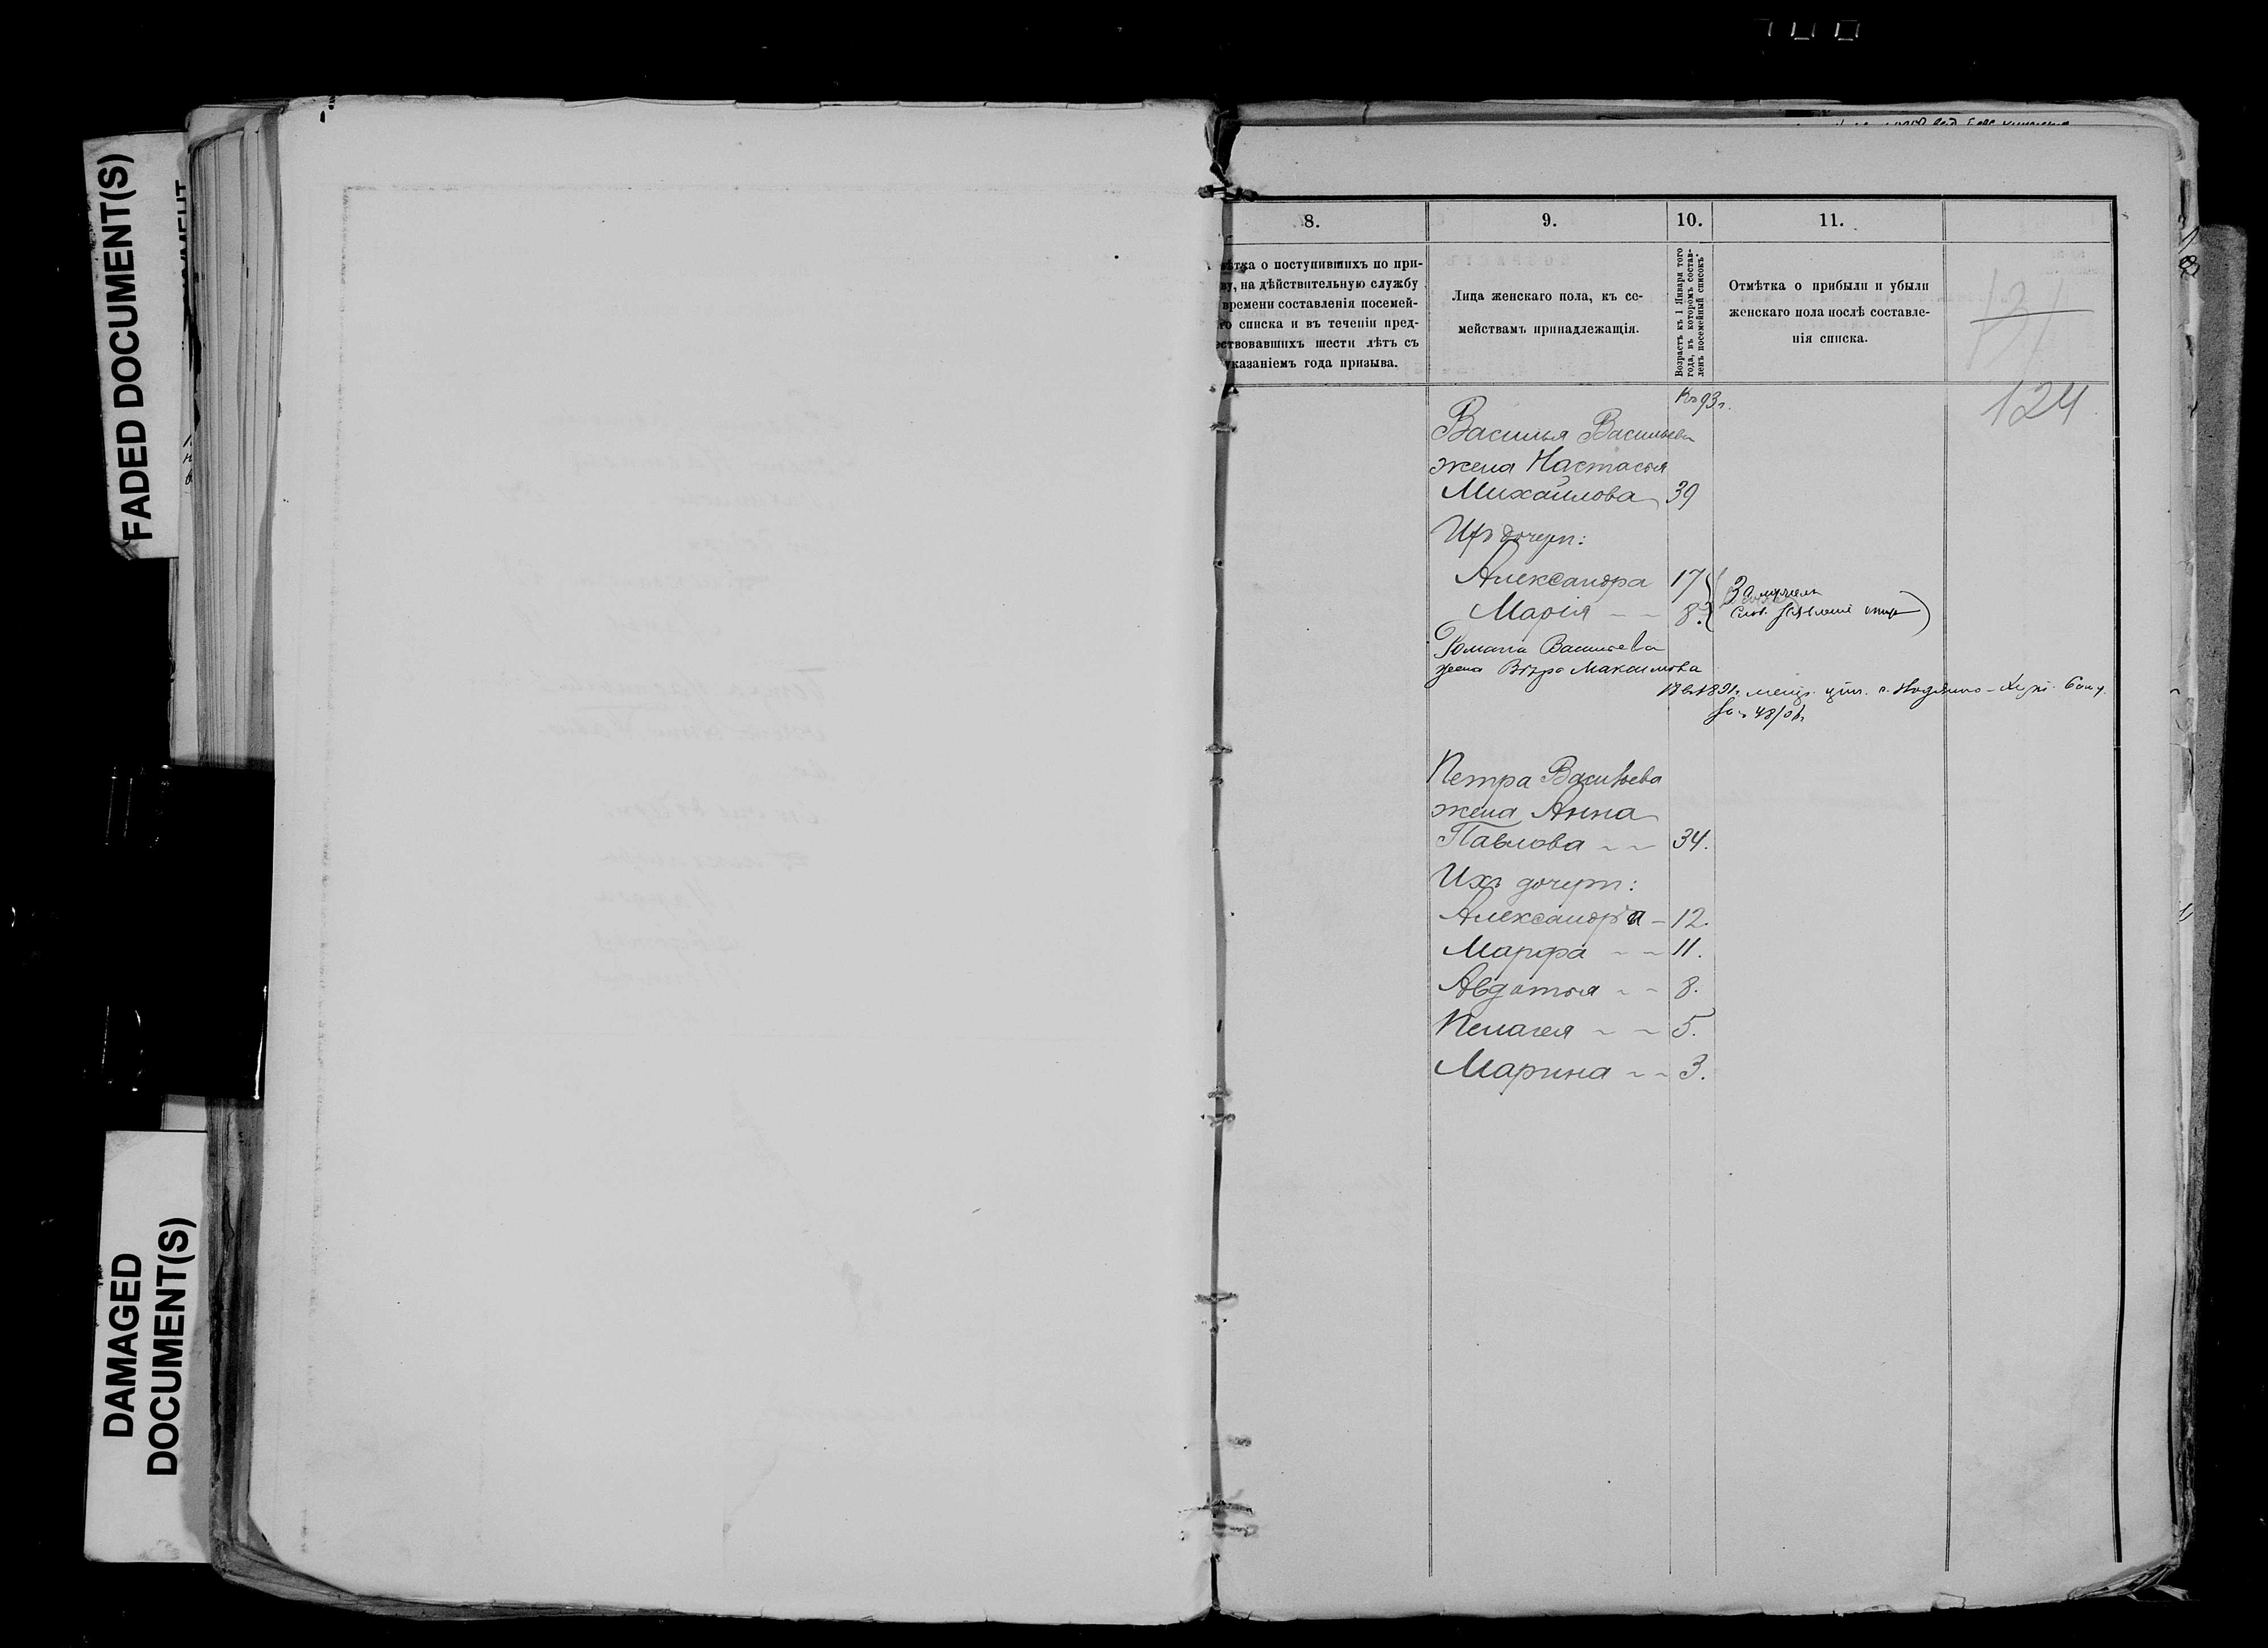 FADED DOCUMENT(S)
DAMAGED
DOCUMENT(S)
8.
9.
10.
11.
ѣтка о поступившихъ по при-
ву, на дѣйствительную службу
времени составленія посемей-
го списка и въ теченіи пред-
ствовавшихъ шести лѣтъ съ
указаніемъ года призыва.
Лица женскаго пола, къ се-
мействамъ принадлежащія.
Возрастъ къ 1 Января того
года, въ которомъ состав-
ленъ посемейный списокъ.
Отмѣтка о прибыли и убыли
женскаго пола послѣ составле-
нія списка.
131
124
Къ 93 г.
Василья Васильева
жена Настасья
Михайлова 39
Ихъ дочери:
Александра 17
Марія 8.
За мужемъ
Романа Васильева
жена Вѣра Максимова
Петра Васильева
жена Анна
Павлова 34.
Ихъ дочери:
Александра 12.
Марфа 11.
Авдотья 8.
Пелагея 5.
Марина 3.